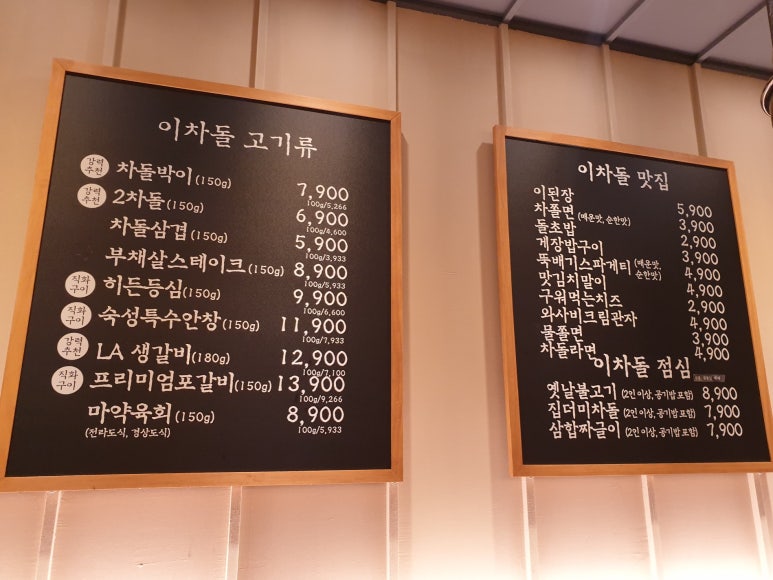 이차돌 고기류
강력추천 차돌박이 (150g) 7,900
100g/5,266
강력추천 2차돌 (150g) 6,900
100g/4,600
차돌삼겹 (150g) 5,900
100g/3,933
부채살스테이크 (150g) 8,900
100g/5,933
직화구이 히든등심 (150g) 9,900
100g/6,600
직화구이 숙성특수안창 (150g) 11,900
100g/7,933
강력추천 LA 생갈비 (180g) 12,900
100g/7,100
직화구이 프리미엄포갈비 (150g) 13,900
100g/9,266
마약육회 (150g) 8,900
(전라도식, 경상도식) 100g/5,933
이차돌 맛집
이된장 5,900
차쫄면 (매운맛, 순한맛) 3,900
돌초밥 2,900
게장밥구이 3,900
뚝배기스파게티 (매운맛, 순한맛) 4,900
맛김치말이 4,900
구워먹는치즈 2,900
와사비크림관자 4,900
물쫄면 3,900
차돌라면 4,900
이차돌 점심
옛날불고기 (2인 이상, 공기밥 포함) 8,900
집더미차돌 (2인 이상, 공기밥 포함) 7,900
삼합짜글이 (2인 이상, 공기밥 포함) 7,900